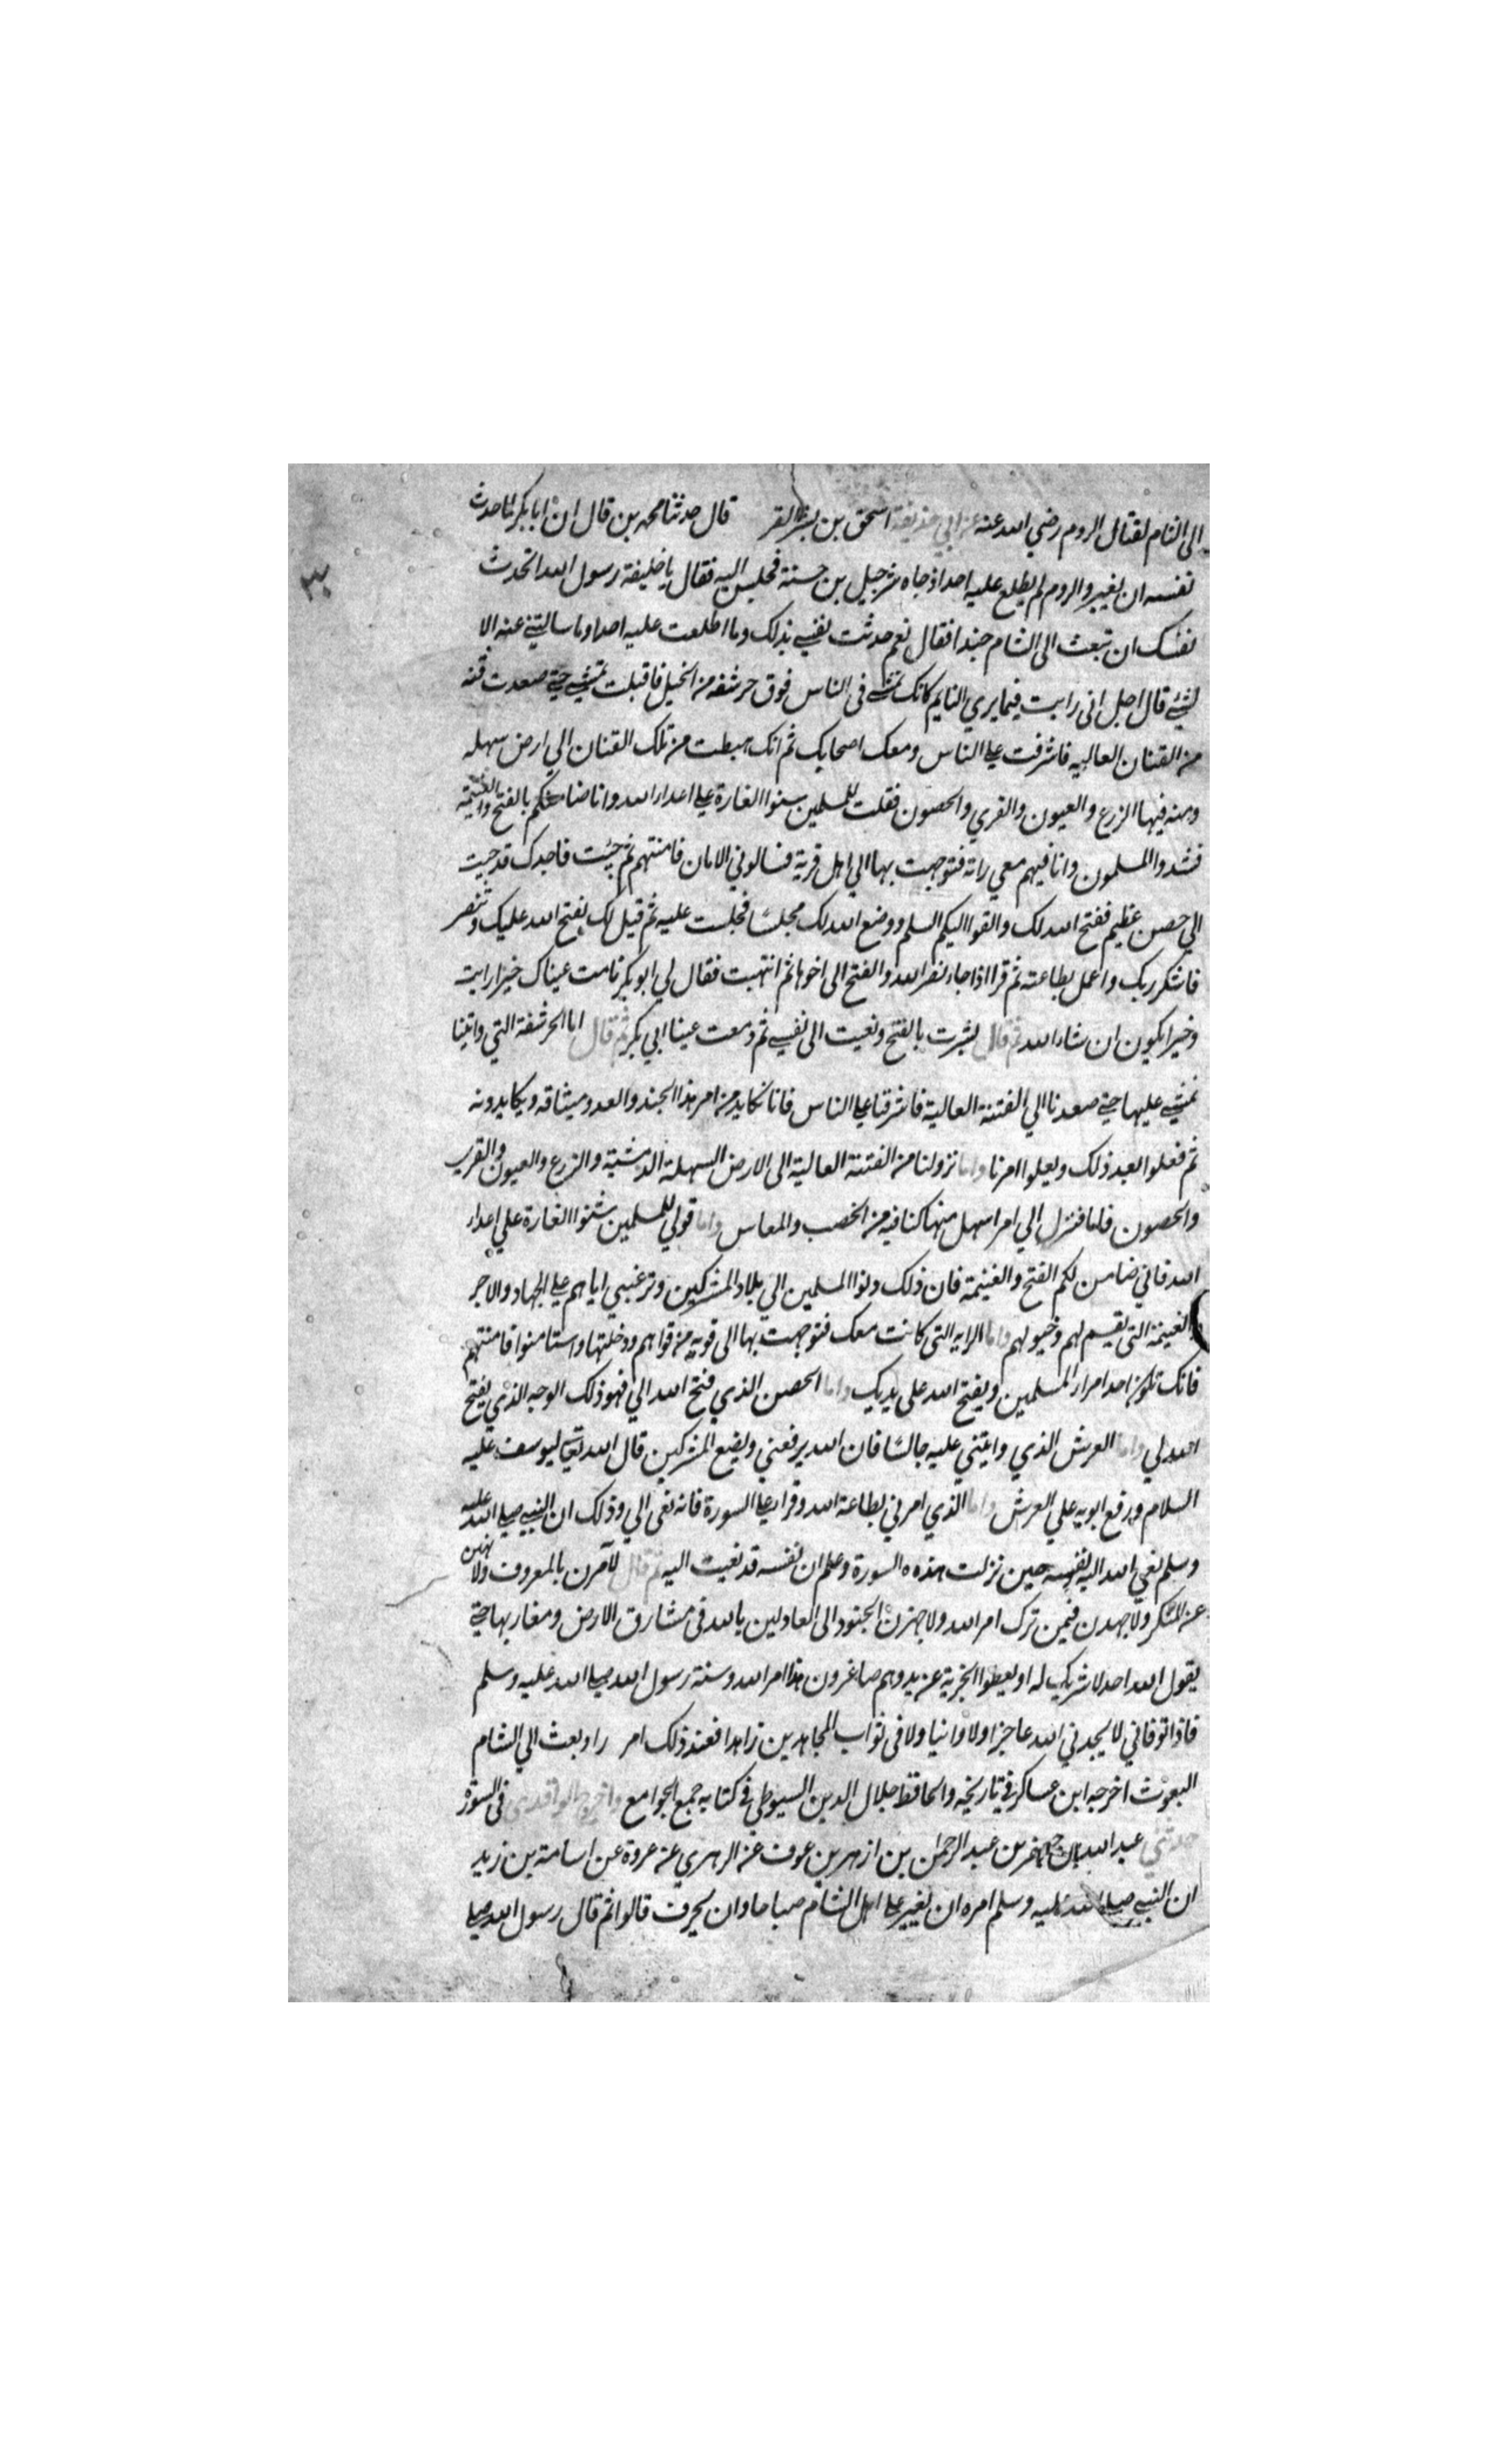 الى الشام لقتال الروم رضي الله عنه عن ابي حذيفة اسحق بن بشر القر قال حدثنا محمد بن قال ان ابا بكر لما حدث
نفسه ان يغير والروم لم يطلع عليه احد اذ جاه شرحبيل بن حسنة فجلس اليه فقال يا خليفة رسول الله اتحدث
نفسك ان تبعث الى الشام جندا فقال نعم حدثت نفسي بذلك وما اطلعت عليه احدا وما سالتني عنه الا
لشئ قال اجل انى رايت فيما يري النايم كانك تمشي فى الناس فوق حرشفه من الخيل فاقبلت تمشي حتى صعدت قنه
من القنان العاليه فاشرفت على الناس ومعك اصحابك ثم انك هبطت من تلك القنان الي ارض سهله
ومنه فيها الزرع والعيون والقري والحصون فقلت للمسلمين سنوا الغارة على اعداء الله وانا ضامنكم بالفتح والغنيمة
فشدوا المسلمون وانا فيهم معي راته فتوجهت بها الي اهل قرية فسالوني الامان فامنتهم ثم جئت فاجدك قد جيت
الي حصن عظيم ففتح الله لك والقوا اليكم السلم ووضع الله لك مجلسًا فجلست عليه ثم قيل لك يفتح الله عليك وتنصر
فاشكر ربك واعمل بطاعته ثم قرا اذا جاء نصر الله والفتح الى اخوها ثم انتهبت فقال لي ابو بكر نامت عيناك خيرا رايت
وخيرا يكون ان شاء الله ثم قال بشرت بالفتح ونعيت الى نفسي ثم دمعت عينا ابي بكر ثم قال اما الحرشفة التي رايتنا
نمشي عليها حتى صعدنا الي الفتنة العالية فاشرقنا على الناس فانا نكابد من امر هذا الجند والعدو ميثاقه ويكابدونه
ثم فعلوا بعد ذلك ويعلوا امرنا واما نزولنا من الفتنة العالية الى الارض السهلة الدمشية والزرع والعيون والقرى
والحصون فاما فنزل الي امر اسهل منها كنا فيه من الخصب والمعاس واما قولي للمسلمين شنوا الغارة علي اعداء
الله فاني ضامن لكم الفتح والغنيمة فان ذلك دنوا المسلمين الي بلاد المشركين وترغيبي اياهم على الجهاد والاجر
والغنيمة التى تقسم لهم وخيولهم واما الرايه التى كانت معك فتوجهت بها الى قويه من قواهم ودخلتها واستامنوا فامنتهم
فانك تكون احد امراء المسلمين ويفتح الله على يديك واما الحصن الذي فتح الله الي فهو ذلك الوجه الذي يفتح
الله لي واما العرش الذي رايتني عليه جالسًا فان الله يرفعني ويضع المشركين قال الله تعالى ليوسف عليه
السلام ورفع ابويه علي العرش واما الذي امرني بطاعة الله وقرا على السورة فانه نعى الي وذلك ان النبي صلى الله عليه
وسلم نعي الله اليه نفسه حين نزلت هذه السورة وعلم ان نفسه قد نعيت اليه ثم قال لآمرن بالمعروف ولا نهين
عن المنكر ولاجهدن فيمن ترك امر الله ولاجهزن الجنود الى العادلين بالله فى مشارق الارض ومغاربها حتى
يقول الله احد لا شريك له او يعطوا الجزية عن يد وهم صاغرون هذا امر الله وسنة رسول الله صلى الله عليه وسلم
فاذا توفاني لا يجدني الله عاجزا ولا وانيا ولا فى ثواب المجاهدين زاهدا فعند ذلك امر راء وبعث الي الشام
البعوث اخرجه ابن عساكر في تاريخه والحافظ جلال الدين السيوطي في كتابه جمع الجوامع واخرج الواقدي فى السور
حدثني عبد الله بن جعفر بن عبد الرحمن بن ازهر بن عوف عن الزهري عن عروة عن اسامة بن زيد
ان النبي صلى الله عليه وسلم امره ان يغير على اهل الشام صباحا وان يحرف قالوا ثم قال رسول الله صلى